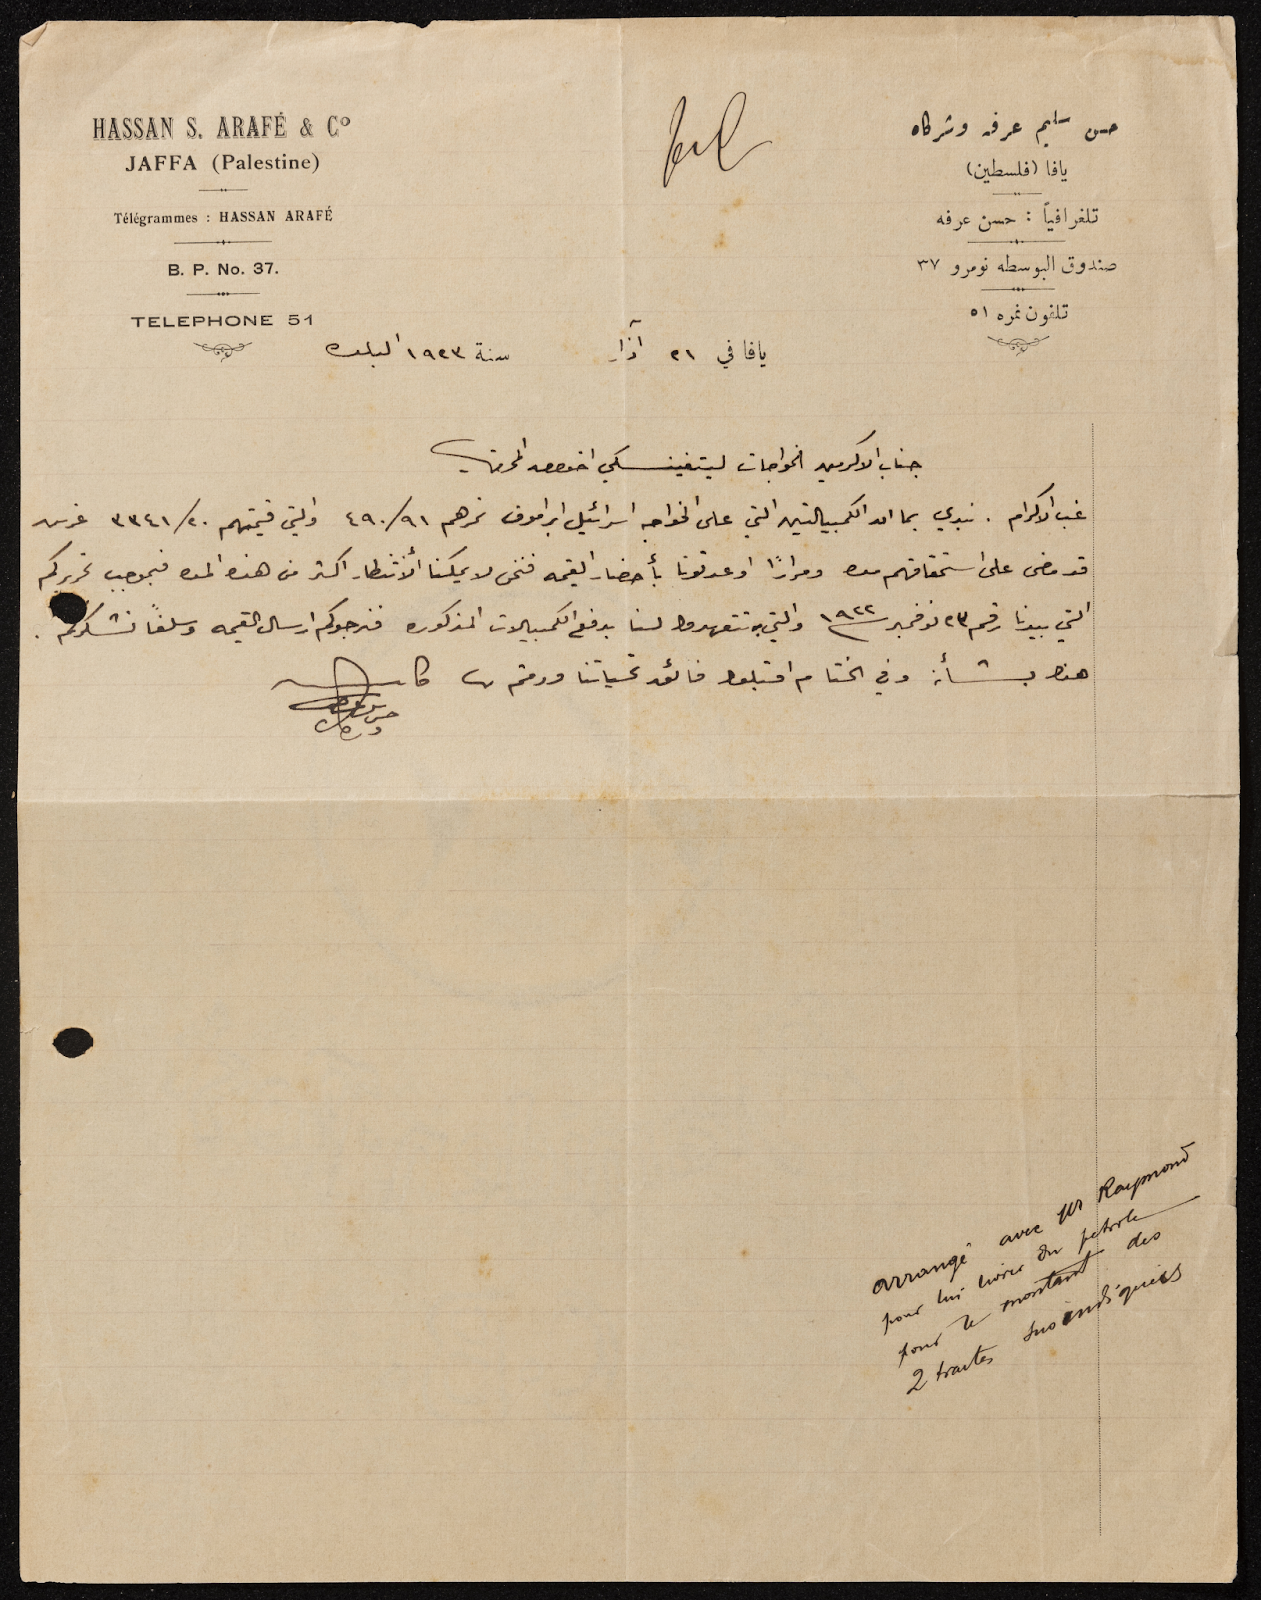 HASSAN S. ARAFÉ & Cº
JAFFA (Palestine)
Télégrammes : HASSAN ARAFÉ
B. P. No. 37.
TELEPHONE 51
حسن سليم عرفه وشركاه
يافا (فلسطين)
تلغرافياً : حسن عرفه
صندوق البوسطه نومرو ٣٧
تلفون نمره ٥١
يافا في ٢١ آذار سنة ١٩٢٣ البلده
جناب الاكرمين الخواجات ليتفينسكي اخوان المحترمين
غب الاكرام . نبدي بما ان الكمبيالتين التي على الخواجه اسرائيل ابراموف نمرهم ٤٩٠/٩١ والتي قيمتهم ٣٣٤١/٢٠ غرش
قد مضى على استحقاقهم مده ومرارًا اوعدتونا بأحضار القيمه فنحن لا يمكننا الأنتظار اكثر من هذه المده فبموجب تحريركم
التي بيدنا رقم ٢٣ نوفمبر ١٩٢٢ والتي به تتعهدوا لنا بدفع الكمبيالات المذكوره فنرجوكم ارسال القيمه وسلفًا نشكركم .
هذا بشأنه وفي الختام اقبلوا فائق تحياتنا ودمتم
arrangé avec Mr Raymond
pour lui livrer du petrole
pour le montant des
2 traites susindiquées